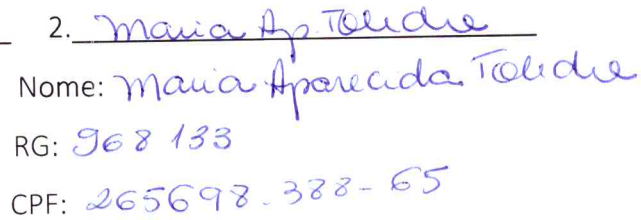 2. Maria Ap. Toledre
Nome: Maria Aparecida Toledre
RG: 968 133
CPF: 265698.388-65